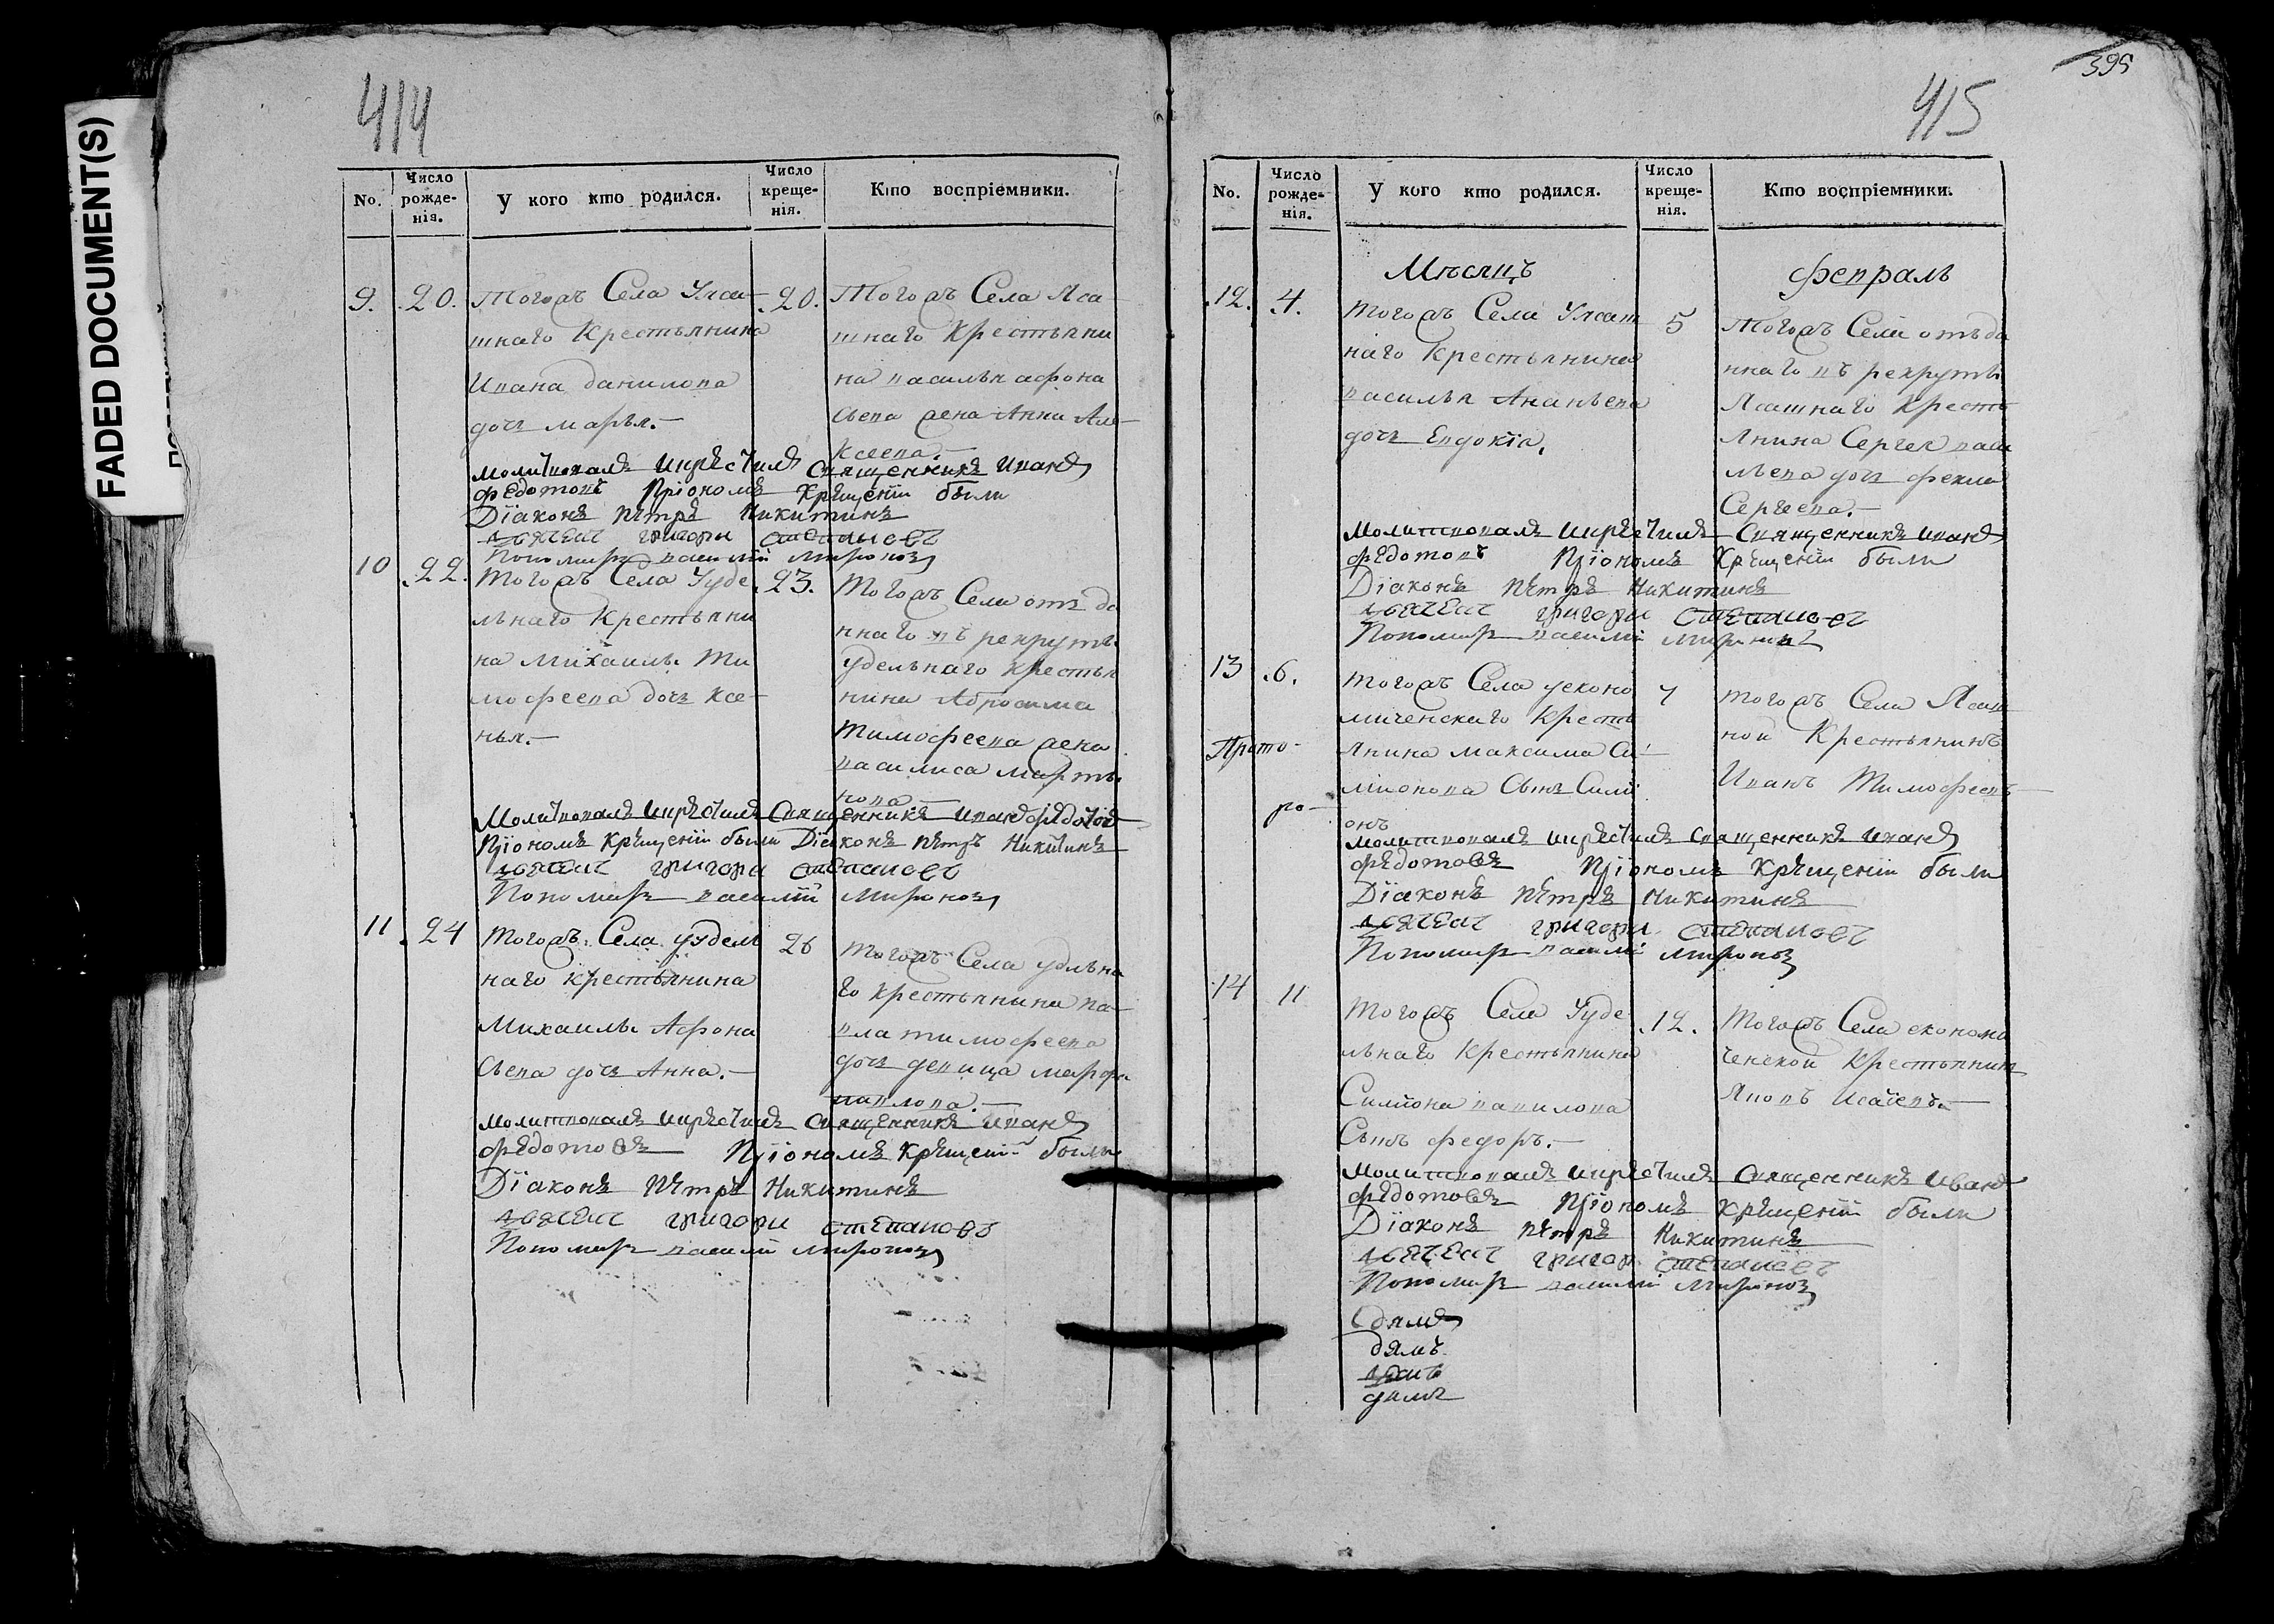 FADED DOCUMENT(S)
414
No.
Число рожде-нія.
У кого кто родился.
Число креще-нія.
Кто воспріемники.
9. 20.
Тогожъ Села Уяса
шнаго Крестьянина
Ивана данилова
дочь марья.
20.
Тогожъ Села Яса
шнаго Крестьяни
на василья афона
сьева жена Анна Але
ксеева.
молитвовалъ икрестилъ Священникъ Иванъ
Федотовъ Приономъ Крещеніи были
Діаконъ Петръ Никитинъ
дьячекъ григори степановъ
Пономарь василій мироновъ
10 22.
Тогожъ Села Ууде
льнаго Крестьяни
на Михаилы Ти
мофеева дочь ксе
нья.
23.
Тогожъ Села отъ да
ннаго въ рекруты
удельнаго крестья
нина Абросима
Тимофеева жена
василиса марты
нова
Молитвовалъ икрестилъ Священникъ иванъ федотовъ
Приономъ Крещеніи были Діаконъ Петръ Никитинъ
дьячекъ григори степановъ
Пономарь василій мироновъ
11 24
Тогожъ Села уудель
наго крестьянина
Михаилы Афона
сьева дочь Анна.
26
Тогожъ Села удельна
го крестьянина па
вла тимофеева
дочь девица марфа
павлова.
молитвовалъ икрестилъ Священникъ иванъ
федотовъ Приономъ Крещеніи были
Діаконъ Петръ Никитинъ
дьячекъ григори степановъ
Пономарь василій мироновъ
395
415
No.
Число рожде-нія.
У кого кто родился.
Число креще-нія.
Кто воспріемники.
Мѣсяцъ февраль
12. 4.
тогожъ Села Уясаш
наго крестьянина
василья Ананьева
дочь Евдокія.
5
Тогожъ Села отъда
ннаго въ рекруты
Ясашнаго кресть
янина Сергея васи
льева дочь фекла
Сергеева.
Молитвовалъ икрестилъ Священникъ иванъ
федотовъ Приономъ Крещеніи были
Діаконъ Петръ Никитинъ
дьячекъ григори степановъ
Пономарь василій мироновъ
13 6.
тогожъ Села уеконо
миченскаго кресть
янина максима Си
міонова Сынъ Симі
онъ
7
тогожъ Села Ясаш
ной Крестьянинъ
Иванъ Тимофеевъ
Прото-
ро
молитвовалъ икрестилъ Священникъ иванъ
федотовъ Приономъ Крещеніи были
Діаконъ Петръ Никитинъ
дьячекъ григори степановъ
Пономарь василій мироновъ
14 11
Тогожъ Села Ууде
льнаго крестьянина
Симиона вавилова
Сынъ федоръ.
12.
Тогожъ Села економи
ченской Крестьянинъ
Яковъ Исаіевъ
Молитвовалъ икрестилъ Священникъ иванъ
федотовъ Приономъ Крещеніи были
Діаконъ Петръ Никитинъ
дьячекъ григори степановъ
Пономарь василій мироновъ